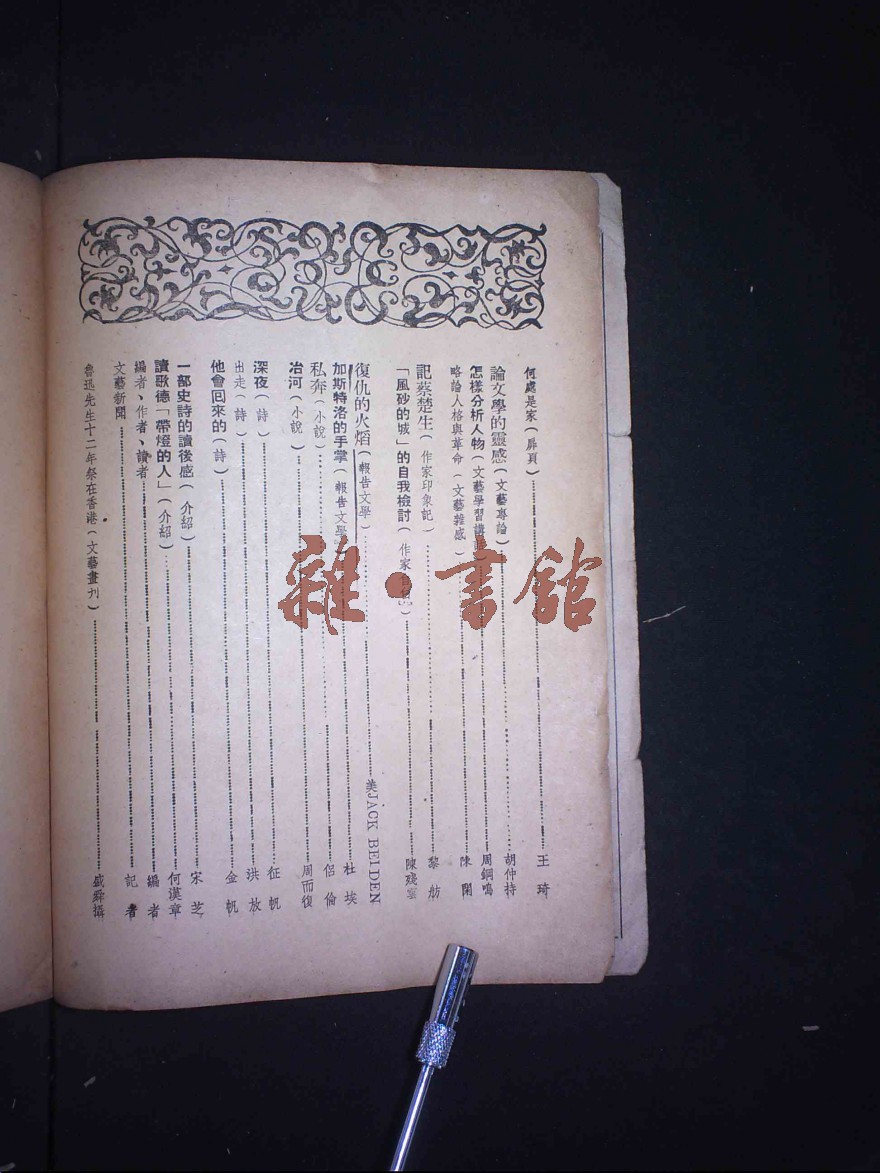 何處是家（扉頁）王琦
論文學的靈感（文藝專論）胡仲持
怎樣分析人物（文藝學習講 周鋼鳴
略論人格與革命（文藝雜感）陳閑
記蔡楚生（作家印象記）黎舫
「風砂的城」的自我檢討（作家 ）陳殘雲
復仇的火熖（報告文學）美JACK BELDEN
加斯特洛的手掌（報告文學 杜埃
私奔（小說）侶倫
冶河（小說）周而復
深夜（詩）征帆
出走（詩）洪放
他會回來的（詩）金帆
一部史詩的讀後感（介紹）宋芝
讀歌德「帶燈的人」（介紹）何漢章
編者、作者、讀者 編者
文藝新聞 記者
魯迅先生十二年祭在香港（文藝畫刊）盛舜攝
雜·書館